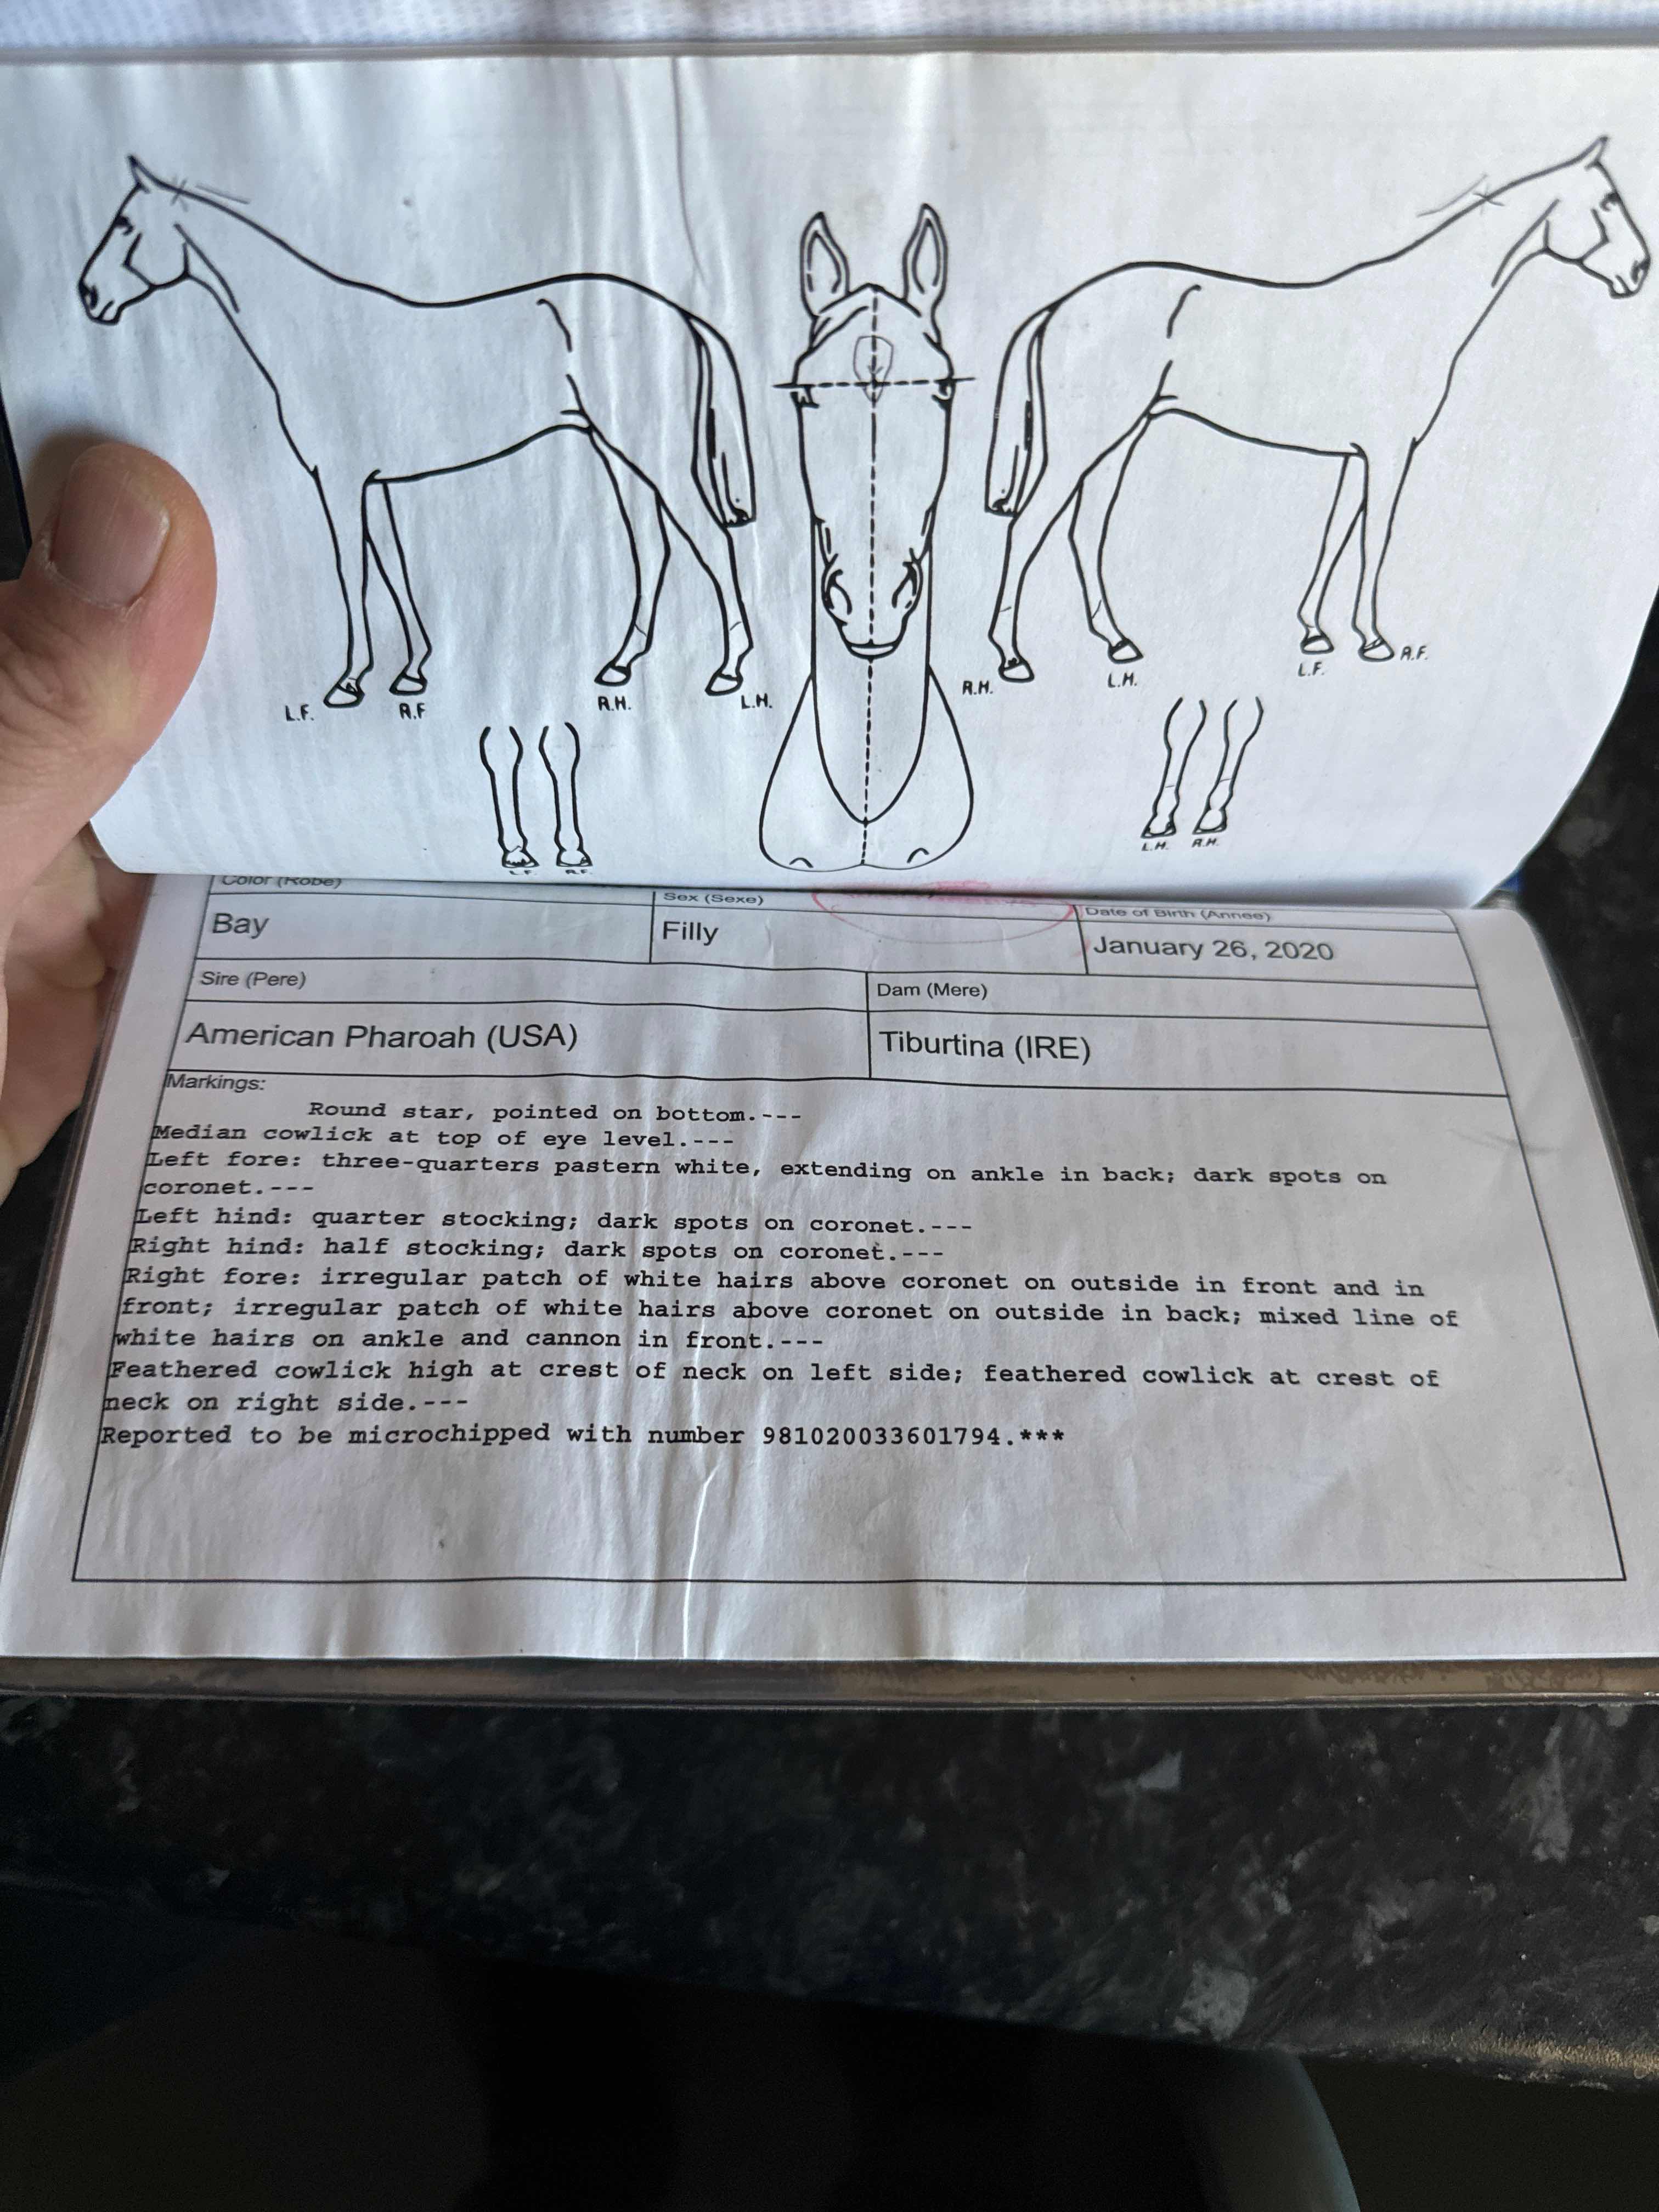 L.F.
R.F
R.H.
L.H.
R.H.
L.H.
L.F.
R.F.
L.F.
R.F.
L.H.
R.H.
Color (Robe)
Sex (Sexe)
Date of Birth (Annee)
Bay
Filly
January 26, 2020
Sire (Pere)
Dam (Mere)
American Pharoah (USA)
Tiburtina (IRE)
Markings:
Round star, pointed on bottom.---
Median cowlick at top of eye level.---
Left fore: three-quarters pastern white, extending on ankle in back; dark spots on
coronet.---
Left hind: quarter stocking; dark spots on coronet.---
Right hind: half stocking; dark spots on coronet.---
Right fore: irregular patch of white hairs above coronet on outside in front and in
front; irregular patch of white hairs above coronet on outside in back; mixed line of
white hairs on ankle and cannon in front.---
Feathered cowlick high at crest of neck on left side; feathered cowlick at crest of
neck on right side.---
Reported to be microchipped with number 981020033601794.***